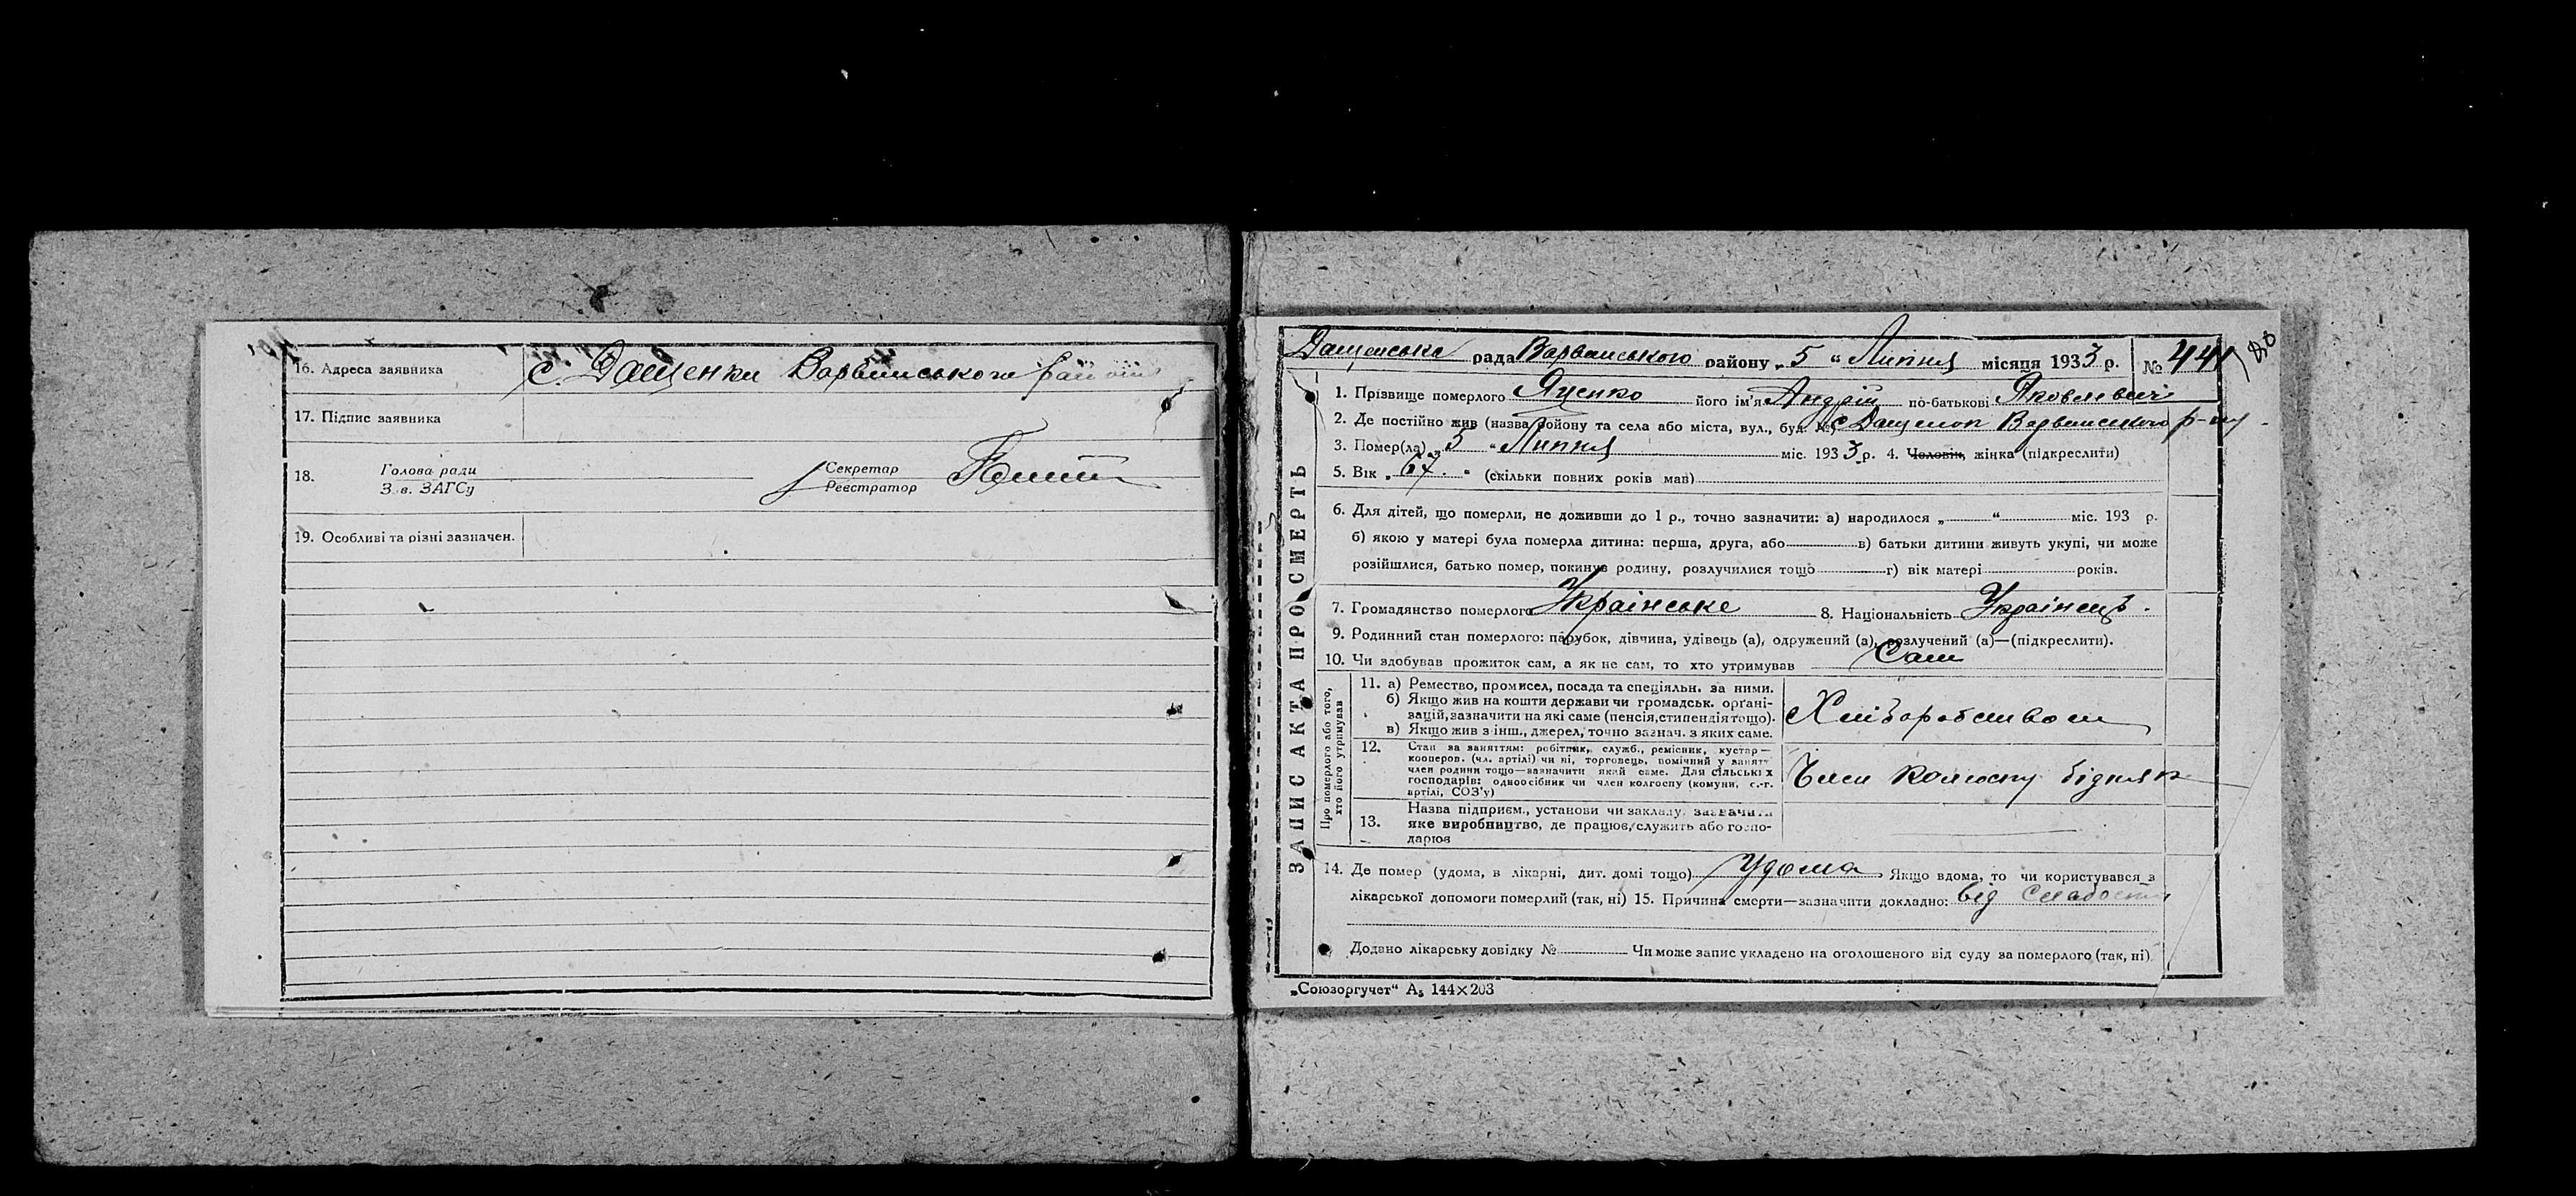 16. Адреса заявника с. Дащенки Варвинського району
17. Підпис заявника
18. Голова ради
З. в. ЗАГСу
Секретар
Реєстратор
19. Особливі та різні зазначен.
ЗАПИС АКТА ПРО СМЕРТЬ
Дащенська рада Варвинського району „ 5 “ Липня місяця 1933 р. № 441
88
1. Прізвище померлого Яценко його ім'я Андрій по-батькові Яковлевич
2. Де постійно жив (назва району та села або міста, вул., буд. №) с Дащенок Варвинського р-ну
3. Помер(ла) „ 5 “ Липня міс. 1933 р. 4. Чоловік, жінка (підкреслити)
5. Вік „ “ (скільки повних років мав)
6. Для дітей, що померли, не доживши до 1 р., точно зазначити: а) народилося „ “ міс. 193 р.
б) якою у матері була померла дитина: перша, друга, або в) батьки дитини живуть укупі, чи може
розійшлися, батько помер, покинув родину, розлучилися тощо г) вік матері років.
7. Громадянство померлого Українське 8. Національність Українець.
9. Родинний стан померлого: парубок, дівчина, удівець (а), одружений (а), розлучений (а)—(підкреслити).
10. Чи здобував прожиток сам, а як не сам, то хто утримував Сам
Про померлого або того,
хто його утримував
11. а) Ремество, промисел, посада та спеціяльн. за ними.
б) Якщо жив на кошти держави чи громадськ. органі-
зацій, зазначити на які саме (пенсія, стипендія тощо).
в) Якщо жив з інш., джерел, точно зазнач. з яких саме.
Хліборобством
12. Стан за заняттям: робітник, служб., ремісник, кустар—
кооперов. (чл. артілі) чи ні, торговець, помічний у занятт
член родини тощо—зазначити який саме. Для сільських
господарів: одноосібник чи член колгоспу (комуни, с.-г.
артілі, СОЗ'у)
Член колгоспу бідняк
13. Назва підприєм., установи чи закладу, зазначити
яке виробництво, де працює, служить або госпо-
дарює
14. Де помер (удома, в лікарні, дит. домі тощо) Удома Якщо вдома, то чи користувався з
лікарської допомоги померлий (так, ні) 15. Причина смерти—зазначити докладно: від слабости
Додано лікарську довідку № Чи може запис укладено на оголошеного від суду за померлого (так, ні)
„Союзоргучет“ А₅ 144×203